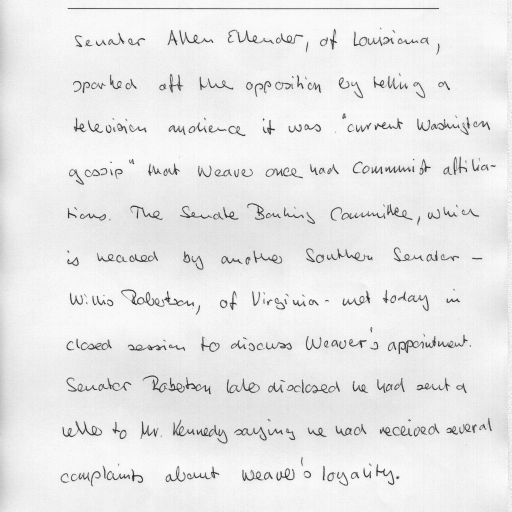 Senator Allen Ellender, of Louisiana,
sparked off the opposition by telling a
television audience it was "current Washington
gossip" that Weaver once had Communist affilia-
tions. The Senate Banking Committee, which
is headed by another Southern Senator -
Willis Robertson, of Virginia - met today in
closed session to discuss Weaver's appointment.
Senator Robertson later disclosed he had sent a
letter to Mr. Kennedy saying he had received several
complaints about Weaver's loyality.